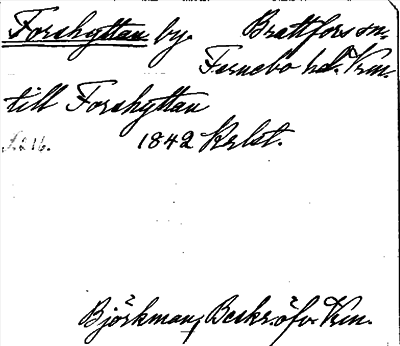 Forshyttan by. Brattfors sn.
Fernebo hd. Vrm.
till Forshyttan
1842 Krlst.
Björkman, Beskr. öfv. Vrm.